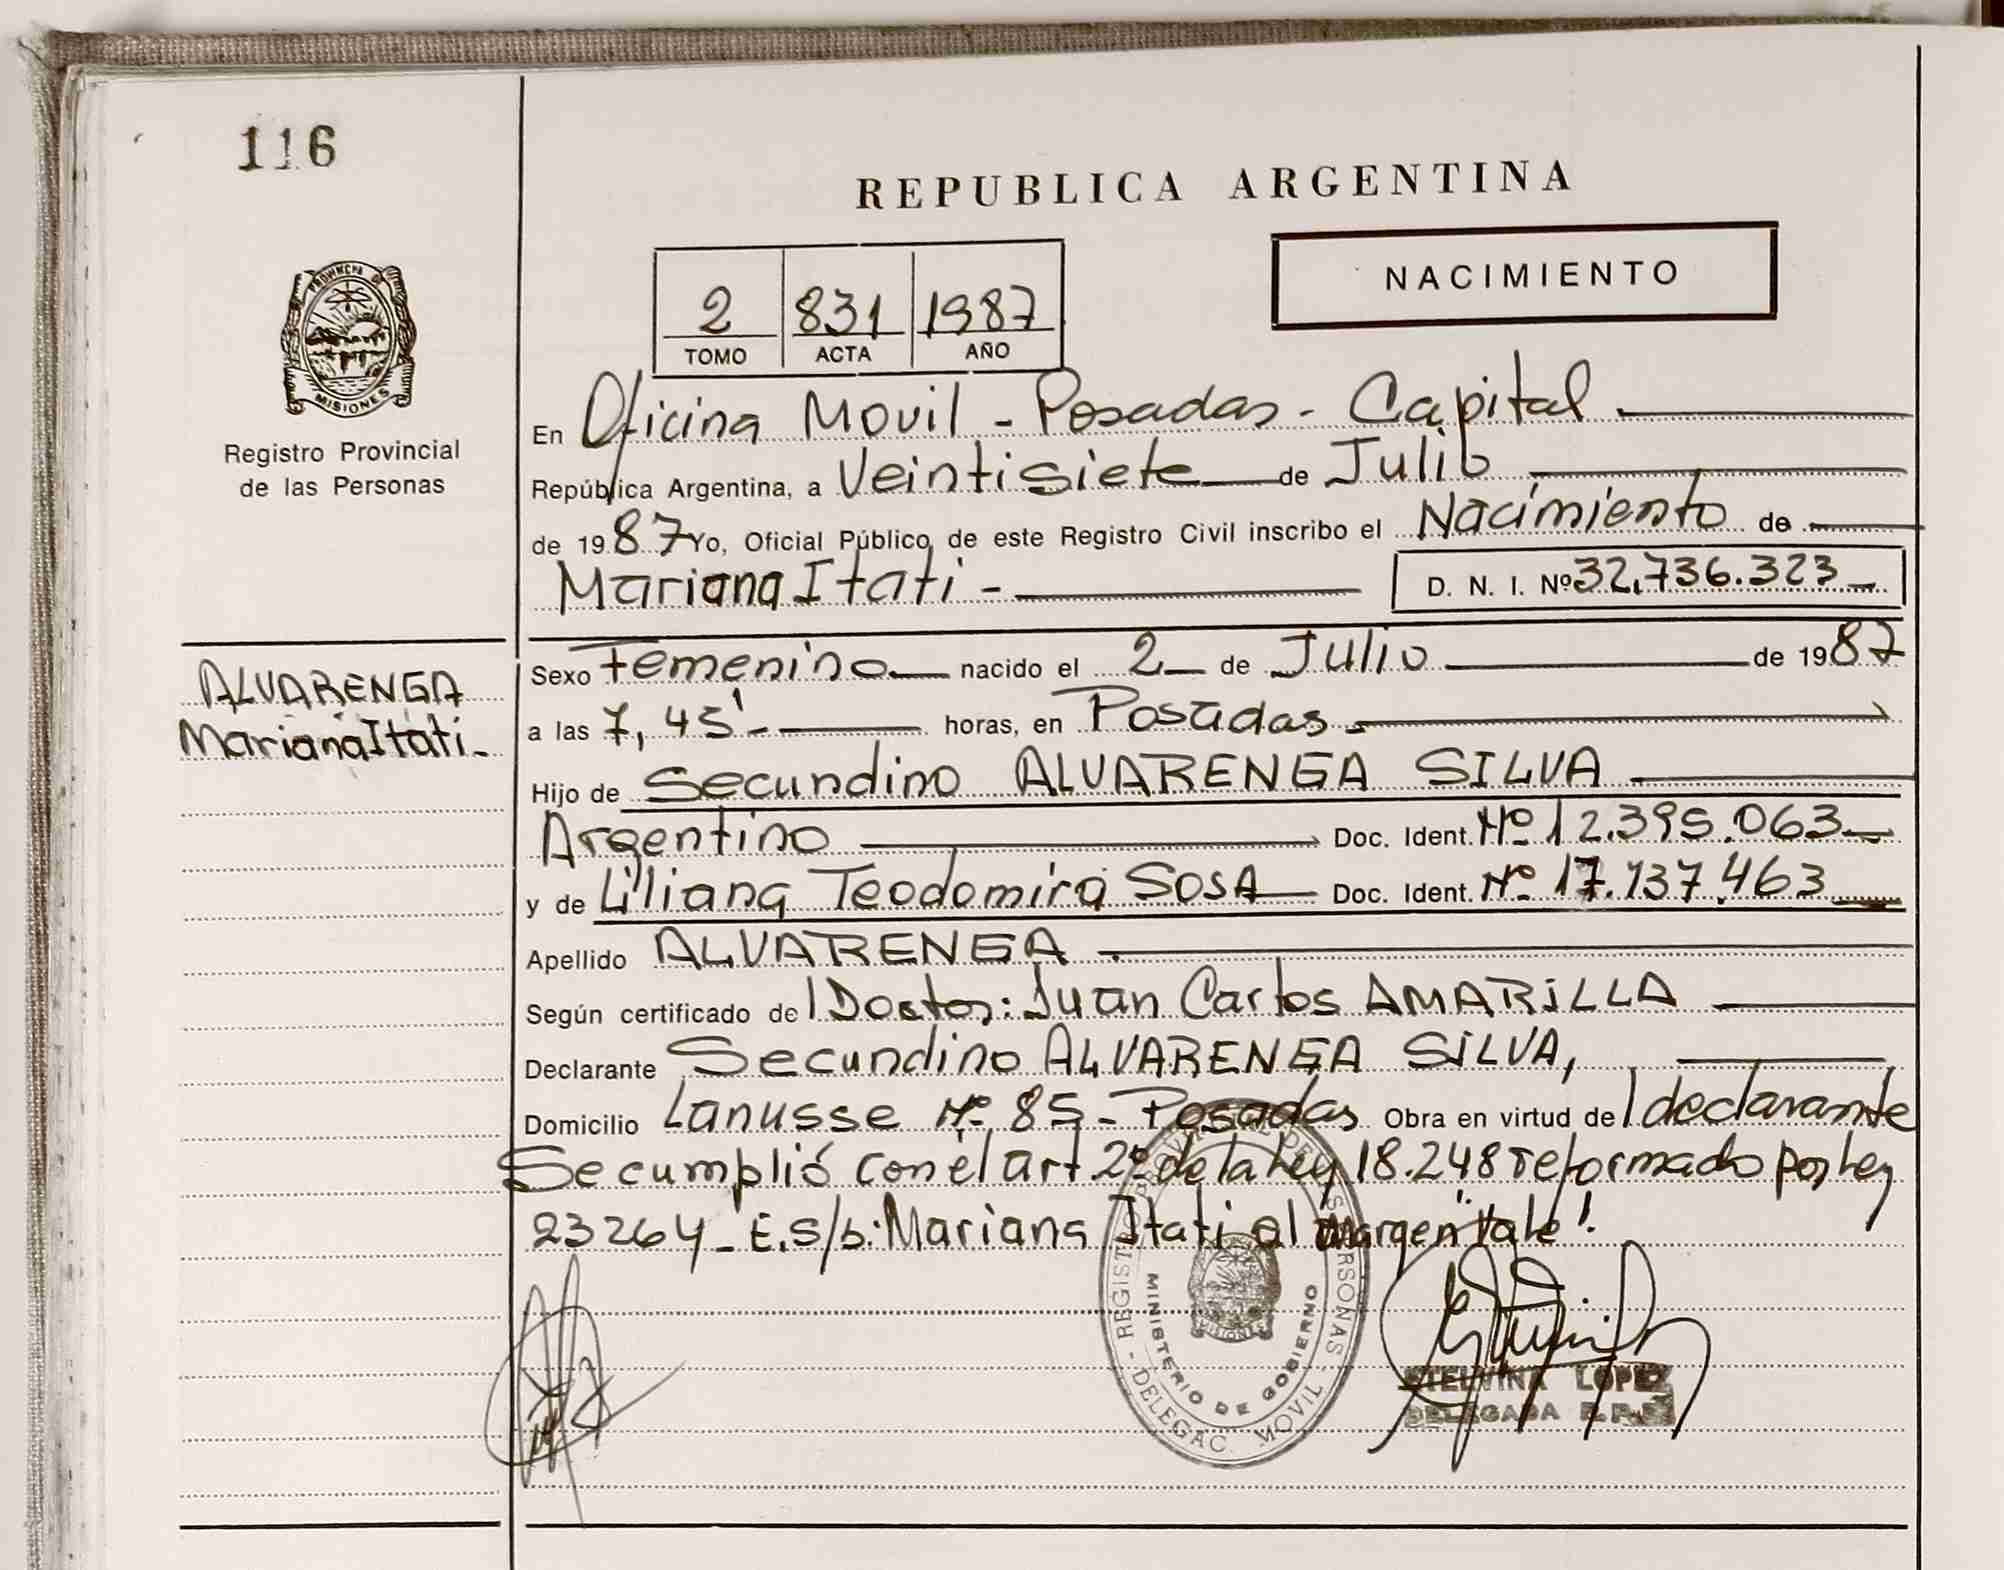 116
REPUBLICA ARGENTINA
NACIMIENTO
2 831 1987
TOMO ACTA AÑO
PROVINCIA DE
MISIONES
Registro Provincial
de las Personas
En Oficina Movil - Posadas - Capital
República Argentina, a Veintisiete de Julio
de 1987 Yo, Oficial Público de este Registro Civil inscribo el Nacimiento de
Mariana Itati - D. N. I. Nº 32.736.323
ALVARENGA
Mariana Itati -
Sexo Femenino nacido el 2 de Julio de 1987
a las 7,45' - horas, en Posadas -
Hijo de Secundino ALVARENGA SILVA
Argentino Doc. Ident. Nº 12.395.063
y de Liliana Teodomira SOSA Doc. Ident. Nº 17.137.463
Apellido ALVARENGA
Según certificado de l Doctor: Juan Carlos AMARILLA
Declarante Secundino ALVARENGA SILVA,
Domicilio Lanusse Nº 85 - Posadas Obra en virtud de l declarante
Se cumplió con el art 2º de la Ley 18.248 reformado por Ley
23264 - E.s/b: Mariana Itati al margen "Vale".
REGISTRO PROVINCIAL DE LAS PERSONAS - DELEGAC. MOVIL -
MINISTERIO DE GOBIERNO
MISIONES
STELVINA LOPEZ
DELEGADA R.P.P.